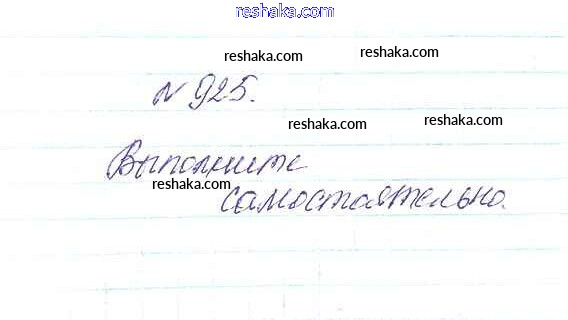 reshaka.com
reshaka.com
reshaka.com
№ 925.
reshaka.com
reshaka.com
Выполните
reshaka.com
самостоятельно.